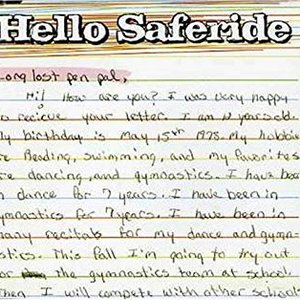 Hello Saferide
ong lost pen pal,
Hi! How are you? I was very happy
o recieve your letter. I am 12 years old
y birthday is May 15th 1978. My hobbie
re Reading, swimming, and my favorites
re dancing, and gymnastics. I have been
n dance for 7 years. I have been in
ymnastics for 7 years. I have been in
any recitals for my dance and gymn-
stics. This fall I'm going to try out
or the gymnastics team at school.
Then I will compete with other school